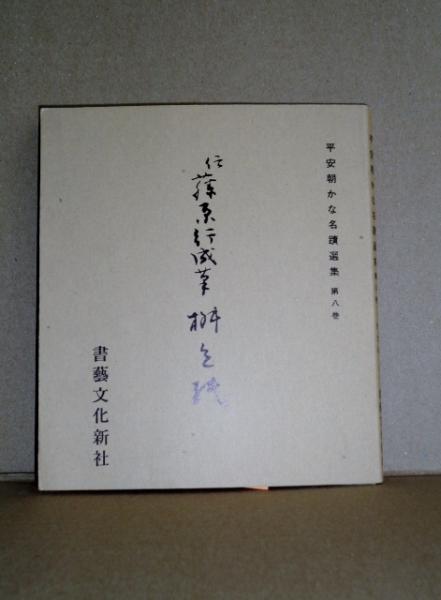 平安朝かな名蹟選集 第八巻
伝藤原行成筆 桝色紙
書藝文化新社